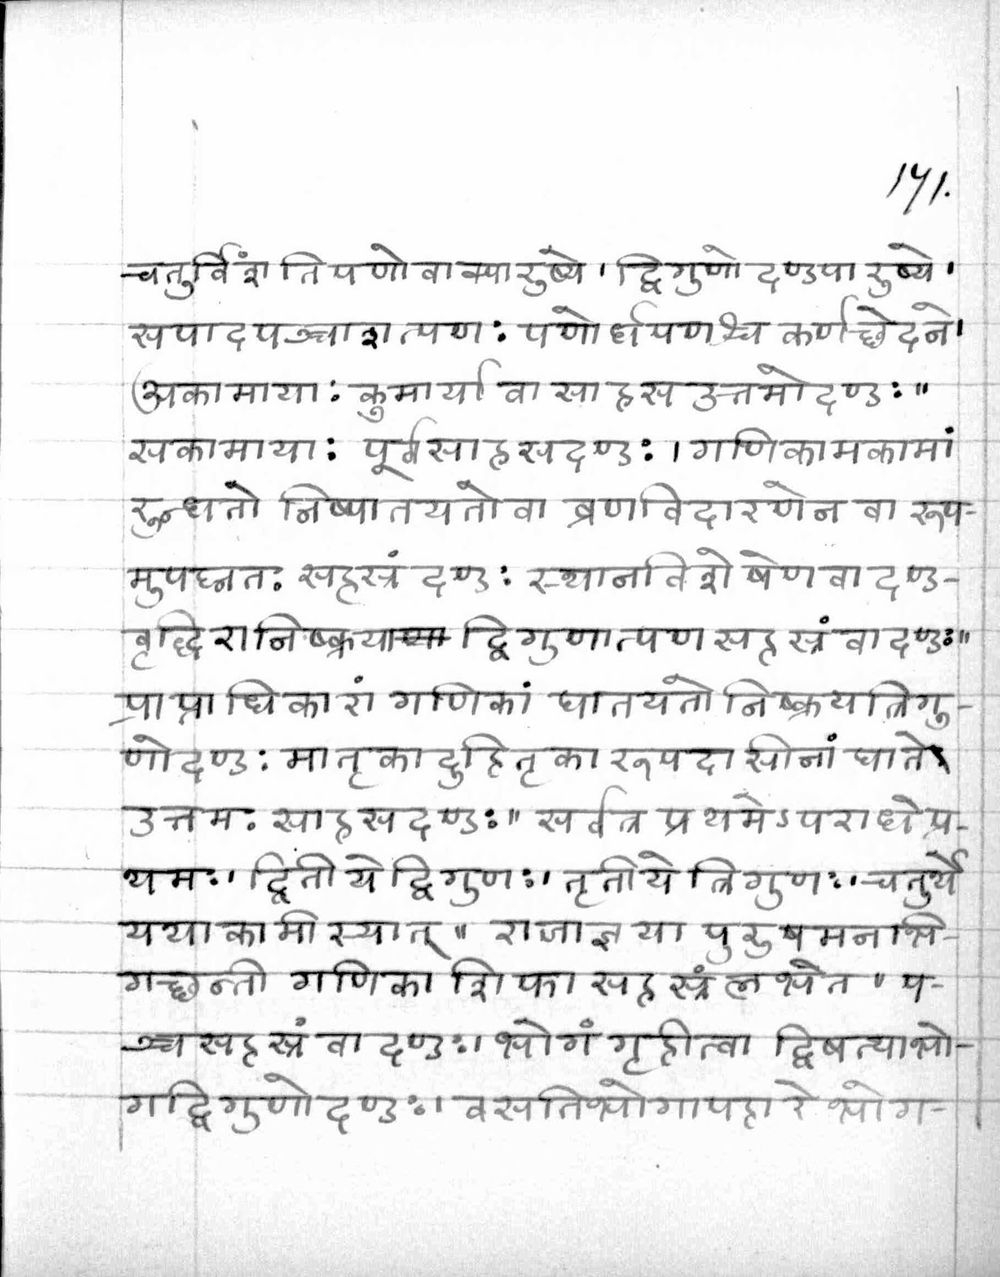 171.
चतुर्विंशतिपणो वाक्पारुष्ये । द्विगुणो दण्डपारुष्ये ।
सपादपञ्चाशत्पणः पणोर्धपणश्च कर्णछेदने ।
अकामायाः कुमार्या वा साहस उत्तमो दण्डः ॥
सकामायाः पूर्वसाहसदण्डः । गणिकामकामां
रुन्धतो निष्पातयतो वा व्रणविदारणेन वा रूप-
मुपघ्नतः सहस्रं दण्डः स्थानविशेषेण वा दण्ड-
वृद्धिरानिष्क्रया द्विगुणात्पणसहस्रं वा दण्डः ॥
प्राप्ताधिकारां गणिकां घातयतो निष्क्रयत्रिगु-
णो दण्डः मातृकादुहितृकारूपदासीनां घाते
उत्तमः साहसदण्डः ॥ सर्वत्र प्रथमेऽपराधे प्र-
थमः । द्वितीये द्विगुणः । तृतीये त्रिगुणः । चतुर्थे
यथाकामी स्यात् ॥ राजाज्ञया पुरुषमनभि-
गच्छन्ती गणिका शिफासहस्रं लभेत । प-
ञ्चसहस्रं वा दण्डः । भोगं गृहीत्वा द्विषत्या भो-
गद्विगुणो दण्डः । वसतिभोगापहारे भोग-